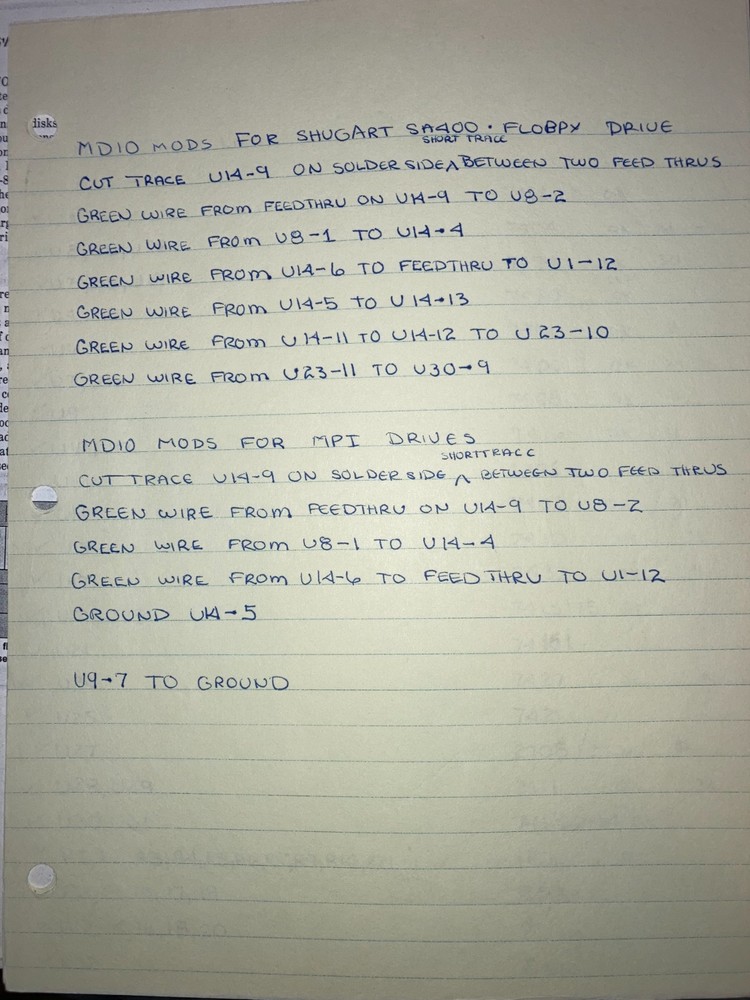 disks
MD10 MODS FOR SHUGART SA400. FLOBPY DRIVE
SHORT TRACE
CUT TRACE U14-9 ON SOLDER SIDE ^ BETWEEN TWO FEED THRUS
GREEN WIRE FROM FEEDTHRU ON U14-9 TO U8-2
GREEN WIRE FROM U8-1 TO U14-4
GREEN WIRE FROM U14-6 TO FEEDTHRU TO U1-12
GREEN WIRE FROM U14-5 TO U14-13
GREEN WIRE FROM U14-11 TO U14-12 TO U23-10
GREEN WIRE FROM U23-11 TO U30-9
MD10 MODS FOR MPI DRIVES
SHORT TRACC
CUT TRACE U14-9 ON SOLDER SIDE ^ BETWEEN TWO FEED THRUS
GREEN WIRE FROM FEEDTHRU ON U14-9 TO U8-2
GREEN WIRE FROM U8-1 TO U14-4
GREEN WIRE FROM U14-6 TO FEEDTHRU TO U1-12
GROUND U14-5
U9-7 TO GROUND